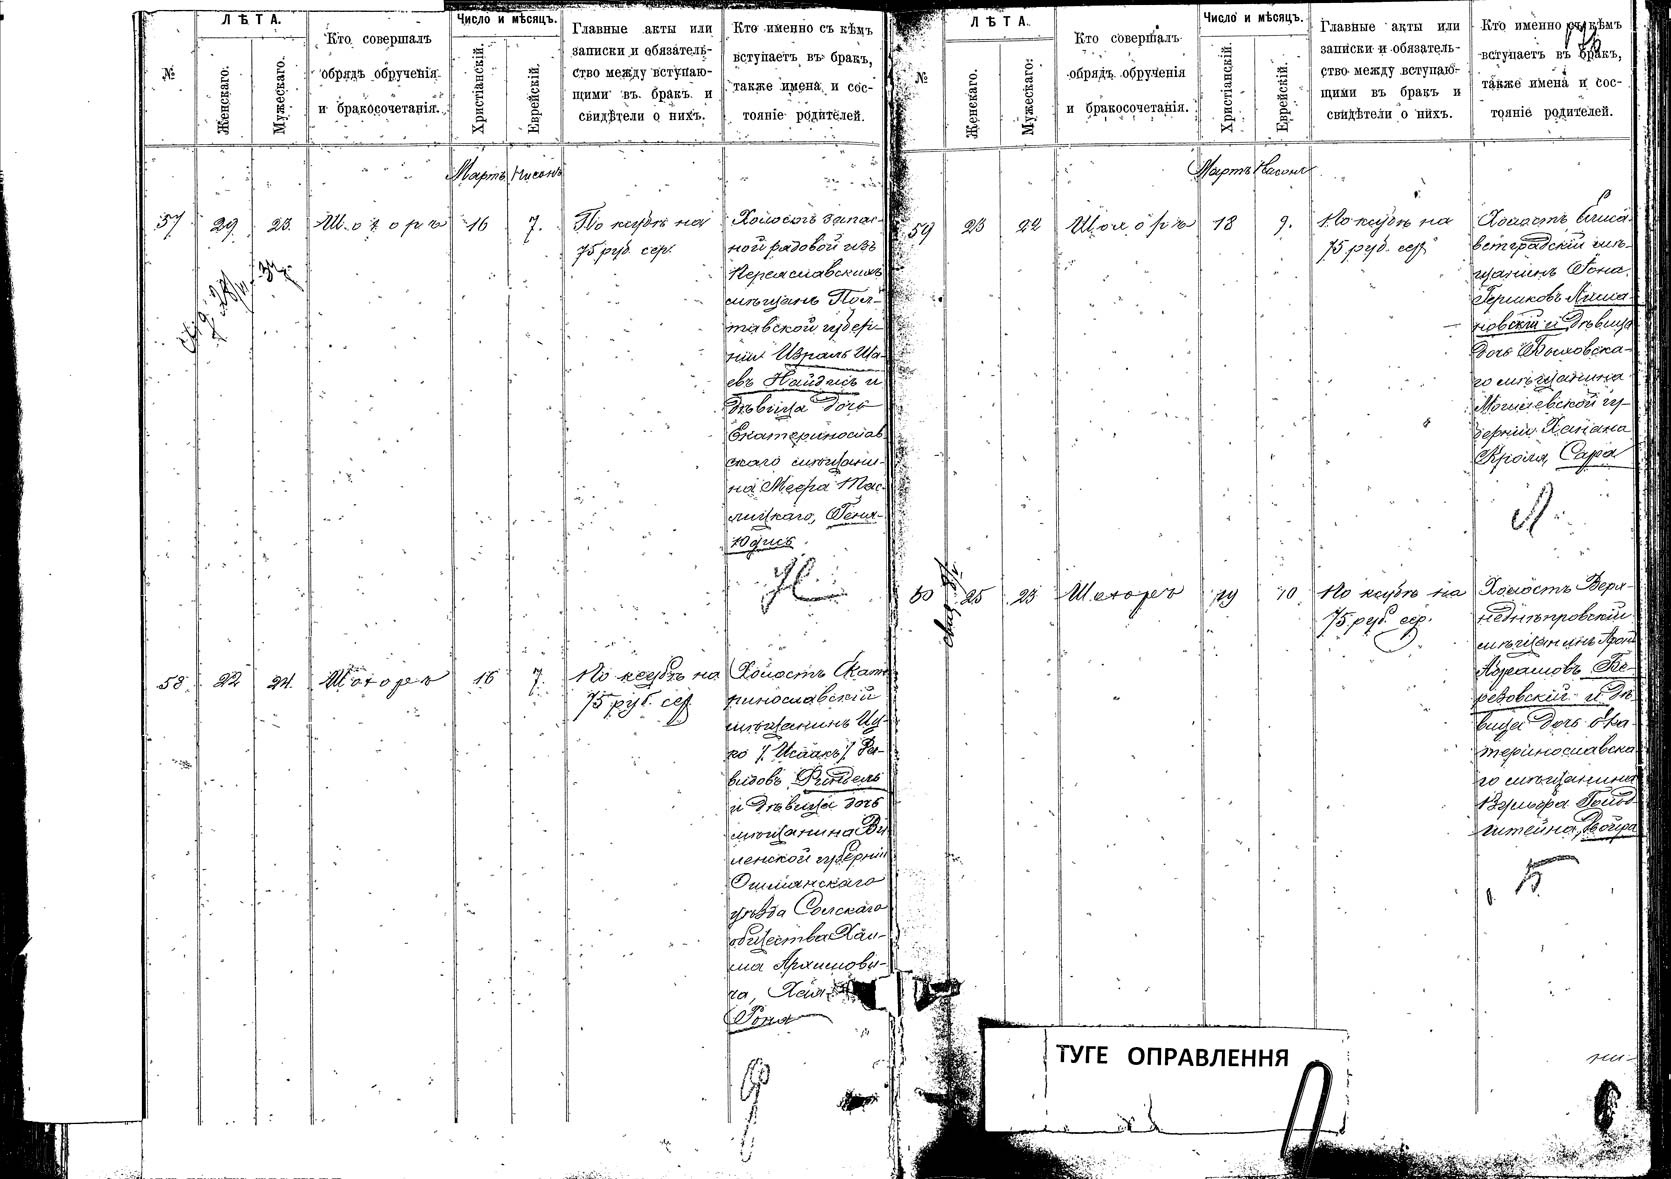 №
ЛѢТА.
Женскаго.
Мужескаго.
Кто совершалъ
обрядъ обрученія
и бракосочетанія.
Число и мѣсяцъ.
Христіанскій.
Еврейскій.
Главные акты или
записки и обязатель-
ство между вступаю-
щими въ бракъ и
свидѣтели о нихъ.
Кто именно съ кѣмъ
вступаетъ въ бракъ,
также имена и сос-
тояніе родителей.
Мартъ Нисонъ
57
29
23
Шохоръ
16
7.
По ксубѣ на
75 руб. сер.
Холостъ запас-
ной рядовой изъ
Переяславскихъ
мѣщанъ Пол-
тавской губер-
ніи Израиль Ша-
евъ Найдисъ и
дѣвица дочь
Екатеринослав
скаго мѣщани-
на Меера
Геня-
Юдисъ
Н
58
22
24
Шохоръ
16
7
По ксубѣ на
75 руб. сер.
Холостъ Екате
ринославскій
мѣщанинъ Иц-
ко /Исаакъ/ Да-
видовъ Финкель
и дѣвица дочь
мѣщанина Ви
ленской губерніи
Ошмянскаго
уѣзда Солскаго
общества Хаи-
ма
ча, Хая
Роня
№
ЛѢТА.
Женскаго.
Мужескаго.
Кто совершалъ
обрядъ обрученія
и бракосочетанія.
Число и мѣсяцъ.
Христіанскій.
Еврейскій.
Главные акты или
записки и обязатель-
ство между вступаю-
щими въ бракъ и
свидѣтели о нихъ.
Кто именно съ кѣмъ
вступаетъ въ бракъ,
также имена и сос-
тояніе родителей.
Мартъ Нисонъ
59
23
22
Шохоръ
18
9.
По ксубѣ на
75 руб. сер.
Холостъ Елиса
ветградскій мѣ-
щанинъ Іона
Гершковъ
новскій и дѣвица
дочь Быховска-
го мѣщанина
Могилевской гу-
берніи Ханана
Кроля, Сара
Л
60
25
23
Шохоръ
19
10
По ксубѣ на
75 руб. сер.
Холостъ Верх-
неднѣпровскій
мѣщанинъ
Абрамовъ Бе-
резовскій и дѣ
вица дочь Ека-
теринославска
го мѣщанина
Вольфа Гольд-
штейна, Двойра
Б
ТУГЕ ОПРАВЛЕННЯ